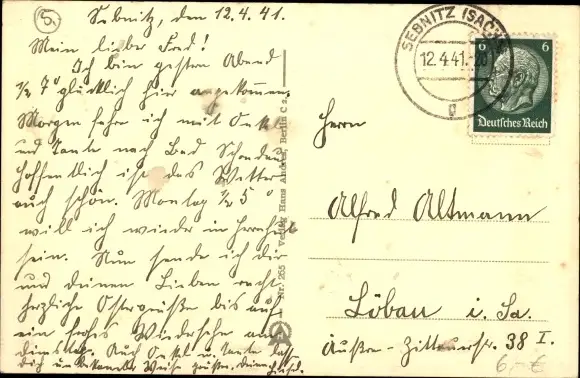 5.
Sebnitz, den 12.4.41.
Mein lieber Fred!
Ich bin gestern Abend
½ 7° glücklich hier angekommen.
Morgen fahre ich mit Onkel
und Tante nach Bad Schandau
hoffentlich ist das Wetter
auch schön. Montag ½ 5°
will ich wieder in Herrnhut
sein. Nun sende ich dir
und deinen Lieben recht
herzliche Ostergrüße bis auf
ein frohes Wiedersehn am
Dienstag. Auch Onkel u. Tante
dich unbekannter Weise grüßen.
Nr. 255 Verlag Hans Andres, Berlin C 2
SEBNITZ (SACHS)
12.4.41.-20
6 6
Deutsches Reich
Herrn
Alfred Altmann
Löbau i. Sa.
Äußere-Zittauerstr. 38 I.
6,- €